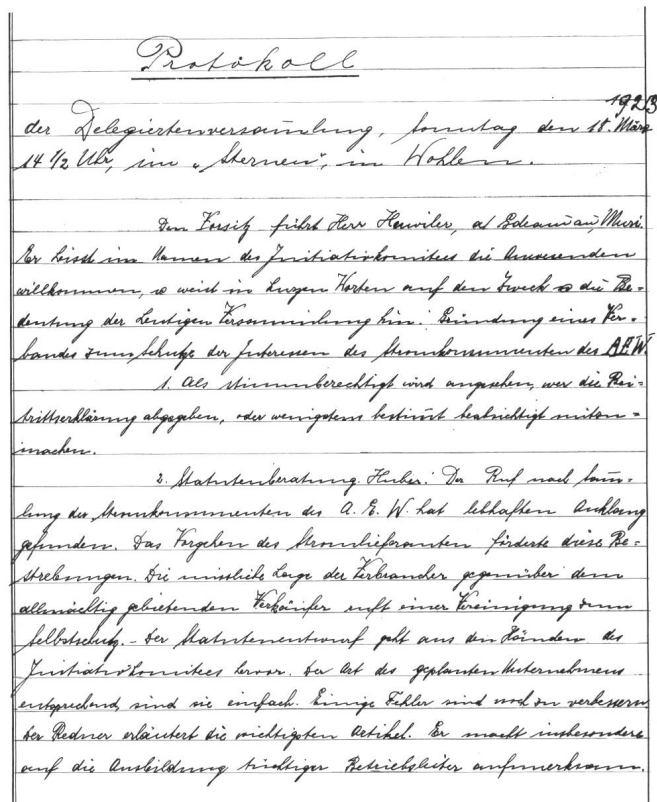 Protokoll
1923
der Delegiertenversammlung, Sonntag den 18. März
14 1/2 Uhr, im „Sternen", in Wohlen.
Den Vorsitz führt Herr Heuwiler, Muri.
Er heisst im Namen des Initiativkomitees die Anwesenden
willkommen, weist in kurzen Worten auf den Zweck die Be-
deutung der heutigen Versammlung hin: Gründung eines Ver-
bandes zum Schutze der Interessen des Stromkonsumenten des AEW.
1. Als stimmberechtigt wird angesehen, wer die Bei-
trittserklärung abgegeben, oder wenigstens bestimmt beabsichtigt mitzu-
machen.
2. Statutenberatung. Huber: Der Ruf nach Samm-
lung der Stromkonsumenten des A. E. W. hat lebhaften Anklang
gefunden. Das Vorgehen des Stromlieferanten förderte diese Be-
strebungen. Die missliche Lage der Verbraucher gegenüber dem
allmächtig gebietenden Verkäufer ruft einer Vereinigung zum
Selbstschutz. - Der Statutenentwurf geht aus den Händen des
Initiativkomitees hervor. Der Art des geplanten Unternehmens
entsprechend, sind sie einfach. Einige Fehler sind noch zu verbessern.
Der Redner erläutert die wichtigsten Artikel. Er macht insbesondere
auf die Ausbildung tüchtiger Betriebsleiter aufmerksam.